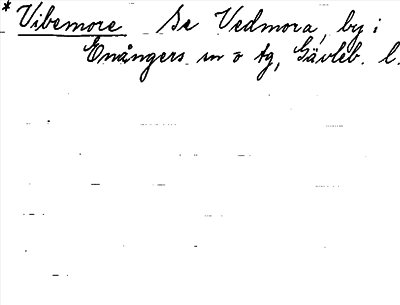 * Vibemore Se Vedmora, by i
Enångers sn o tg, Gävleb. l.